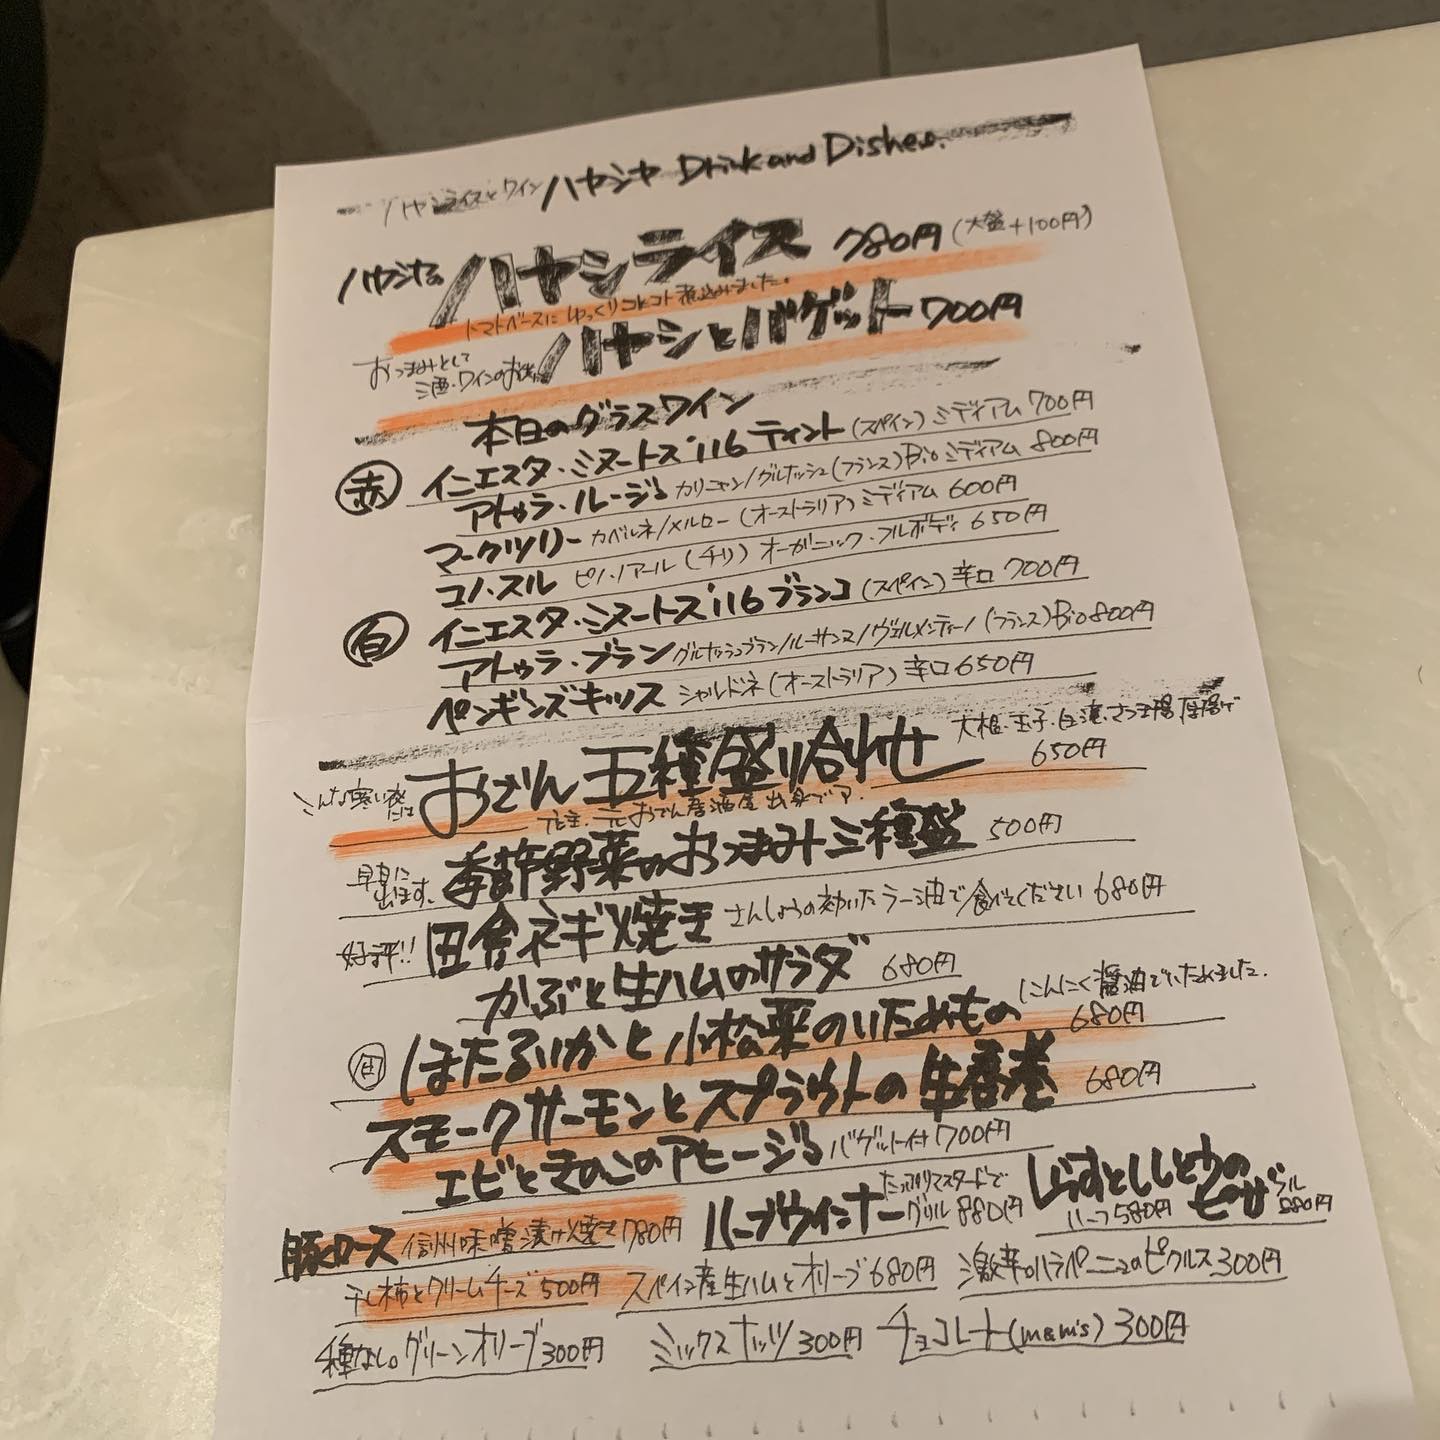 ハヤシライスとワイン ハヤシヤ Drink and Dishes.
ハヤシヤの ハヤシライス 780円 (大盛+100円)
トマトベースにゆっくりコトコト煮込みました。
おつまみとして 酒・ワインのお供 ハヤシとバゲット 700円
本日のグラスワイン
赤 イニエスタ・ミヌートス'116 ティント (スペイン) ミディアム 700円
アトゥラ・ルージュ カリニャン/グルナッシュ (フランス) Bio ミディアム 800円
マークツリー カベルネ/メルロー (オーストラリア) ミディアム 600円
コノ・スル ピノ・ノアール (チリ) オーガニック・フルボディ 650円
白 イニエスタ・ミヌートス'116 ブランコ (スペイン) 辛口 700円
アトゥラ・ブラン グルナッシュブラン/ルーサンヌ/ヴェルメンティーノ (フランス) Bio 800円
ペンギンズキッス シャルドネ (オーストラリア) 辛口 650円
こんな寒い夜には おでん 五種盛り合わせ 大根・玉子・白滝・さつま揚 厚揚げ 650円
店主、元おでん居酒屋出身でア.
早めに出ます。 季節野菜のおつまみ三種盛 500円
好評!! 田舎ネギ焼き さんしょうの効いたラー油で食べてください 680円
かぶと生ハムのサラダ 680円
旬 ほたるいかと小松菜のいためもの にんにく醤油でいためました. 680円
スモークサーモンとスプラウトの生春巻 680円
エビときのこのアヒージョ バゲット付 700円
豚ロース 信州味噌漬け焼き 780円 ハーブウインナー たっぷりマスタードで グリル 880円 しらすとししとうのピザ ハーフ580円 フル 880円
干し柿とクリームチーズ 500円 スペイン産生ハムとオリーブ 680円 激辛のハラペーニョのピクルス 300円
種なし。グリーンオリーブ 300円 ミックスナッツ 300円 チョコレート (m&m's) 300円